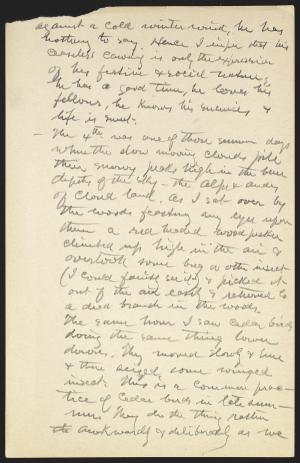 against a cold winter wind, he has
nothing to say. Hence I infer that his
ceaseless cawing is only the expression
of his festive & social nature;
he has a good time, he loves his
fellows, he knows his enemies &
life is sweet.
— The 4th was one of those summer days
when the slow moving clouds pile
their snowy peaks high in the blue
depths of the sky — the alps & andes
of cloud land. As I sat over by
the woods feasting my eyes upon
them a red headed woodpecker
climbed up high in the air &
overtook some bug or other insect
(I could faintly see it) & picked it
out of the air easily & returned to
a dead branch in the woods.
The same hour I saw cedar birds
doing the same thing lower
down. They moved slowly & sure
& then seized some winged
insect. This is a common prac-
tice of cedar birds in late sum-
mer. They do the thing rather
awkwardly & deliberately as we